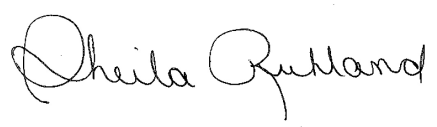 Sheila Ruhland